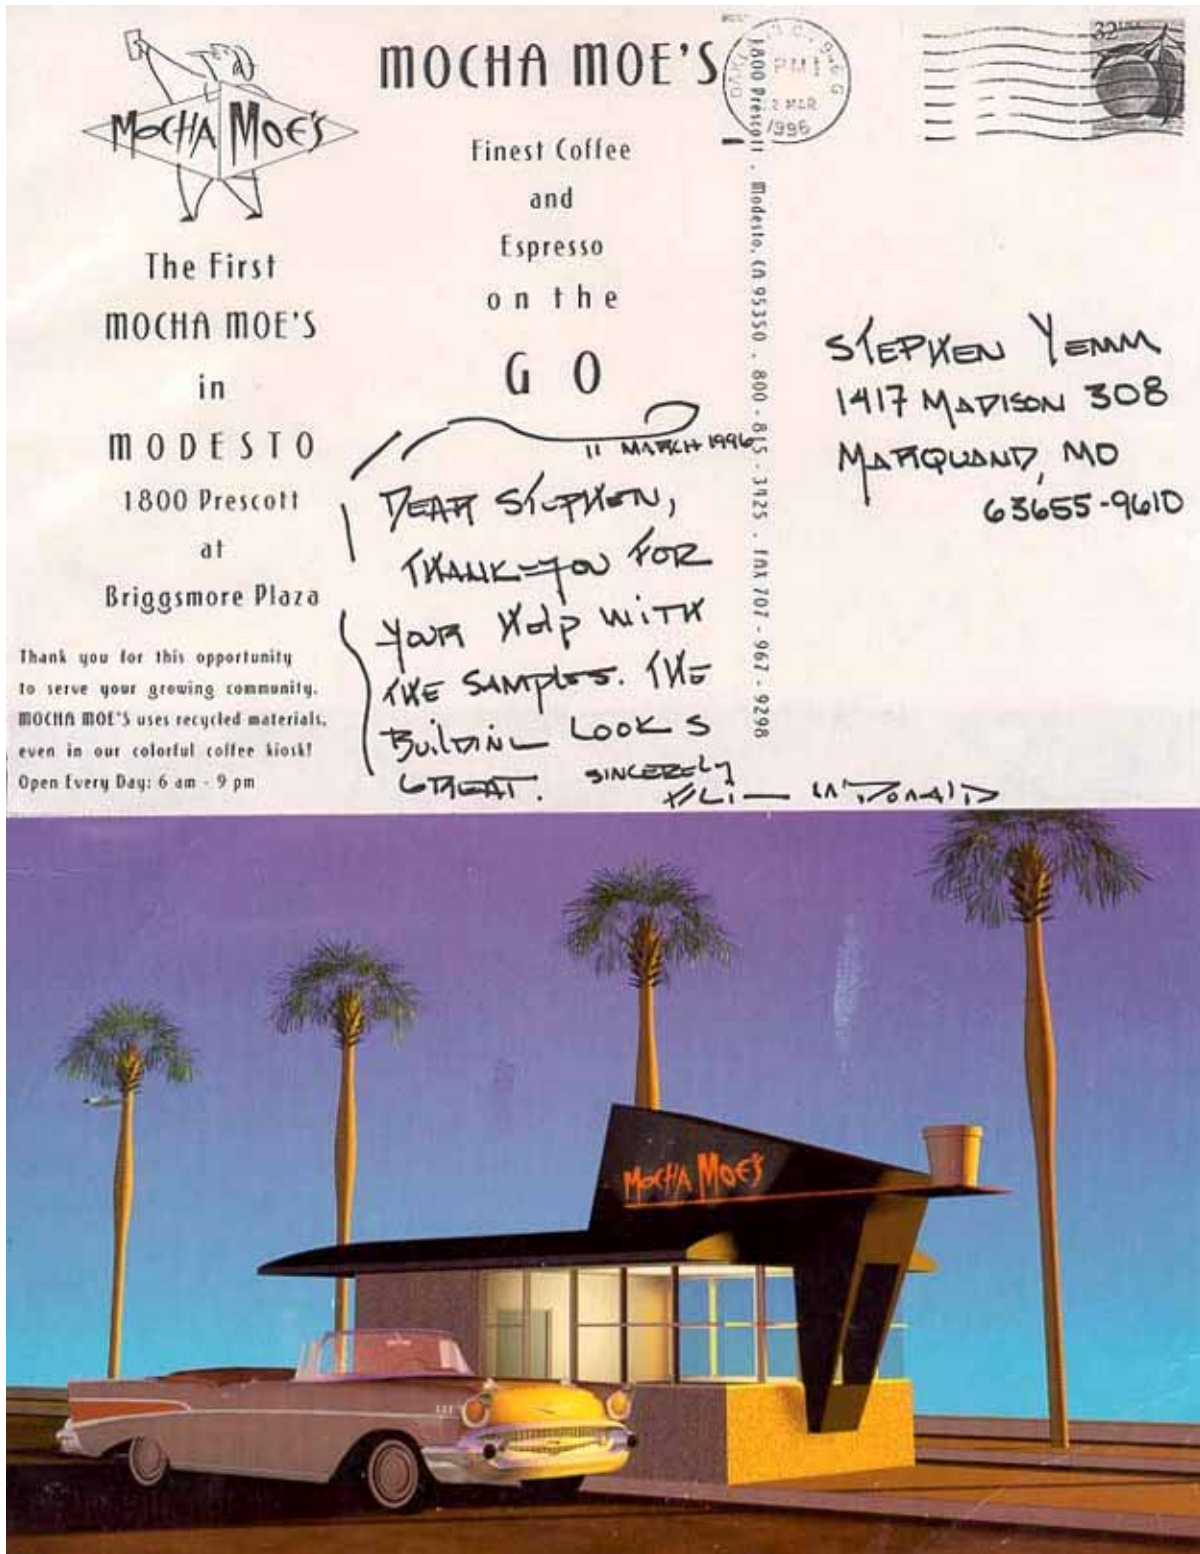 MOCHA MOE'S
The First
MOCHA MOE'S
in
MODESTO
1800 Prescott
at
Briggsmore Plaza
Thank you for this opportunity
to serve your growing community.
MOCHA MOE'S uses recycled materials,
even in our colorful coffee kiosk!
Open Every Day: 6 am - 9 pm
MOCHA MOE'S
Finest Coffee
and
Espresso
on the
GO
11 MARCH 1996
DEAR STEPHEN,
THANK-YOU FOR
YOUR HELP WITH
THE SAMPLES. THE
BUILDING LOOKS
GREAT.
SINCERELY
McDONALD
1800 Prescott . Modesto, CA 95350 . 800 - 815 - 3425 . FAX 707 - 967 - 9298
PM
MAR
1996
32
STEPHEN YEMM
1417 MADISON 308
MARQUAND, MO
63655-9610
MOCHA MOE'S